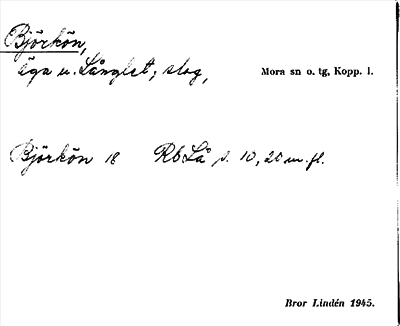 Björkön,
äga u. Långlet, slog,
Mora sn o. tg, Kopp. l.
Björkön 18 RbLå s. 10, 20 m. fl.
Bror Lindén 1945.